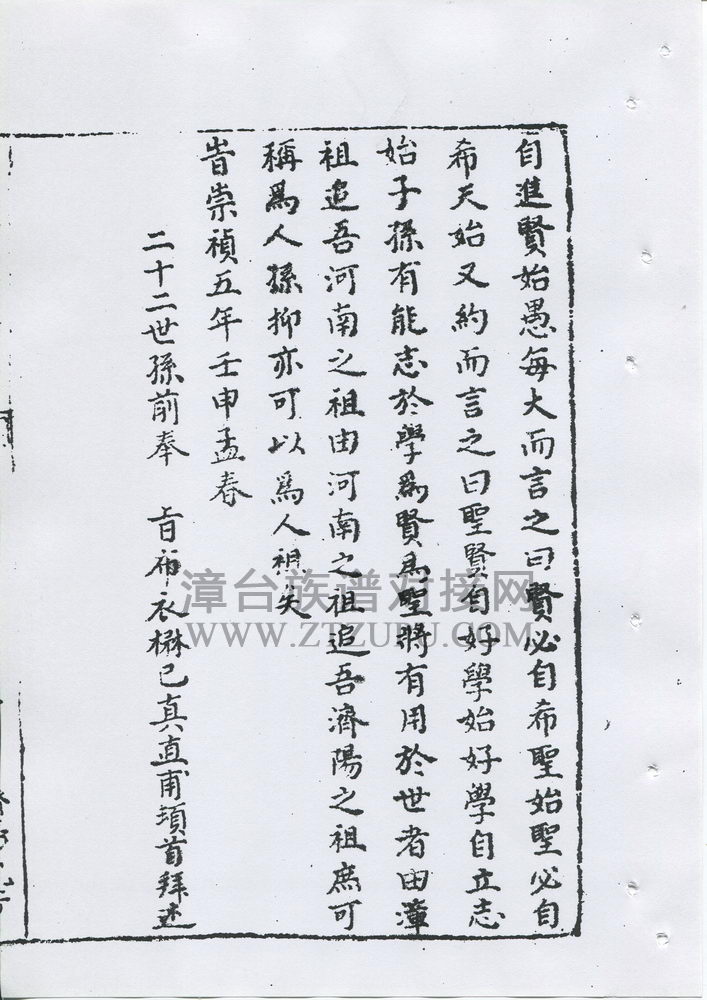 自進賢始愚每大而言之曰賢必自希聖始聖必自
希天始又約而言之曰聖賢自好學始好學自立志
始子孫有能志於學為賢為聖將有用於世者由漳
祖追吾河南之祖由河南之祖追吾濟陽之祖庶可
稱爲人孫抑亦可以爲人祖矣
旹崇禎五年壬申孟春
二十二世孫前奉 旨布衣楙已真直甫頊首拜述
漳台族谱对接网
WWW.ZTZUPU.COM